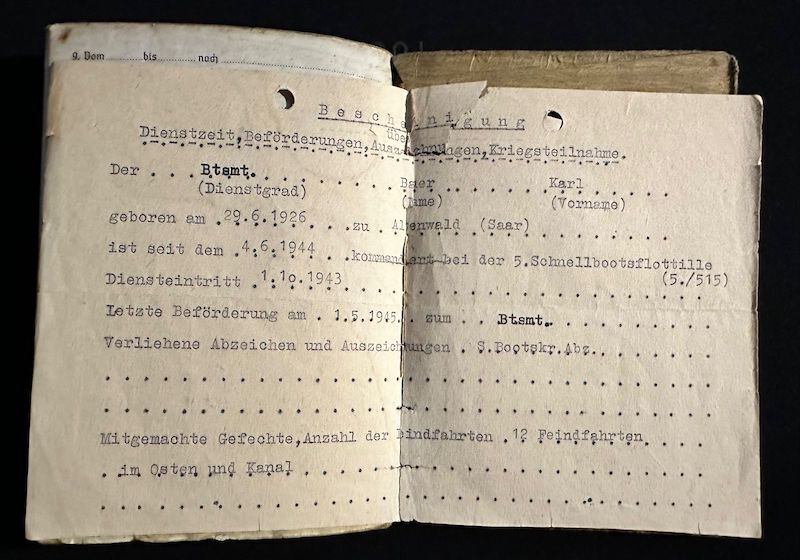 9. Vom ........ bis ........ nach ........
Bescheinigung
über
Dienstzeit, Beförderungen, Auszeichnungen, Kriegsteilnahme.
Der . Btsmt. . . . Baier . . . Karl . . . . .
(Dienstgrad) (Name) (Vorname)
geboren am .29.6.1926 . . .zu . Altenwald (Saar) . . . . .
ist seit dem . 4.6.1944 . . .kommandiert bei der 5.Schnellbootsflottille
(5./515)
Diensteintritt .1.1o.1943. . . . . . . . . . .
Letzte Beförderung am . 1.5.1945. . zum . . Btsmt. . . . . . .
Verliehene Abzeichen und Auszeichtungen . S.Bootskr.Abz. . . . .
Mitgemachte Gefechte,Anzahl der Feindfahrten . 12 Feindfahrten. . .
. im Osten und Kanal . . . . . . . . . .